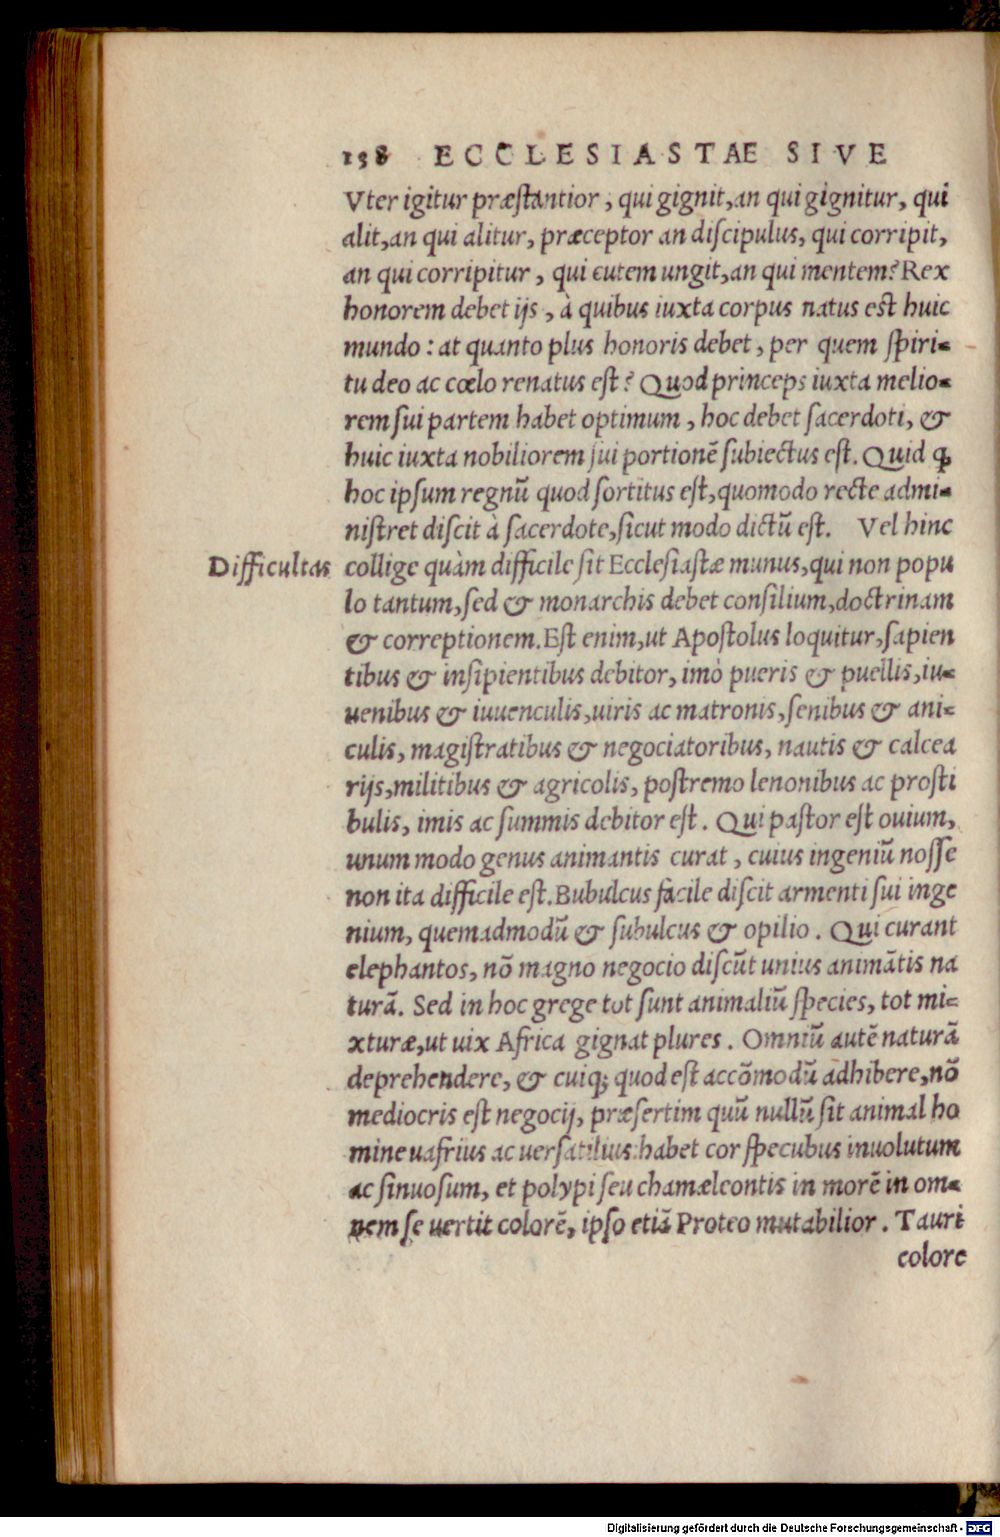 138 ECCLESIASTAE SIVE
Vter igitur præstantior, qui gignit, an qui gignitur, qui
alit, an qui alitur, præceptor an discipulus, qui corripit,
an qui corripitur, qui cutem ungit, an qui mentem? Rex
honorem debet ijs, à quibus iuxta corpus natus est huic
mundo: at quanto plus honoris debet, per quem spiri-
tu deo ac cœlo renatus est? Quod princeps iuxta melio-
rem sui partem habet optimum, hoc debet sacerdoti, &
huic iuxta nobiliorem sui portionē subiectus est. Quid ꝙ
hoc ipsum regnū quod sortitus est, quomodo recte admi-
nistret discit à sacerdote, sicut modo dictū est. Vel hinc
Difficultas collige quàm difficile sit Ecclesiastæ munus, qui non popu
lo tantum, sed & monarchis debet consilium, doctrinam
& correptionem. Est enim, ut Apostolus loquitur, sapien
tibus & insipientibus debitor, imò pueris & puellis, iu-
uenibus & iuuenculis, uiris ac matronis, senibus & ani-
culis, magistratibus & negociatoribus, nautis & calcea
rijs, militibus & agricolis, postremo lenonibus ac prosti
bulis, imis ac summis debitor est. Qui pastor est ouium,
unum modo genus animantis curat, cuius ingeniū nosse
non ita difficile est. Bubulcus facile discit armenti sui inge
nium, quemadmodū & subulcus & opilio. Qui curant
elephantos, nō magno negocio discūt unius animātis na
turā. Sed in hoc grege tot sunt animaliū species, tot mi-
xturæ, ut uix Africa gignat plures. Omniū autē naturā
deprehendere, & cuiq; quod est accōmodū adhibere, nō
mediocris est negocij, præsertim quū nullū sit animal ho
mine uafrius ac uersatilius: habet cor specubus inuolutum
ac sinuosum, et polypi seu chamæleontis in morē in om-
nem se uertit colorē, ipso etiā Proteo mutabilior. Tauri
colore
Digitalisierung gefördert durch die Deutsche Forschungsgemeinschaft - DFG